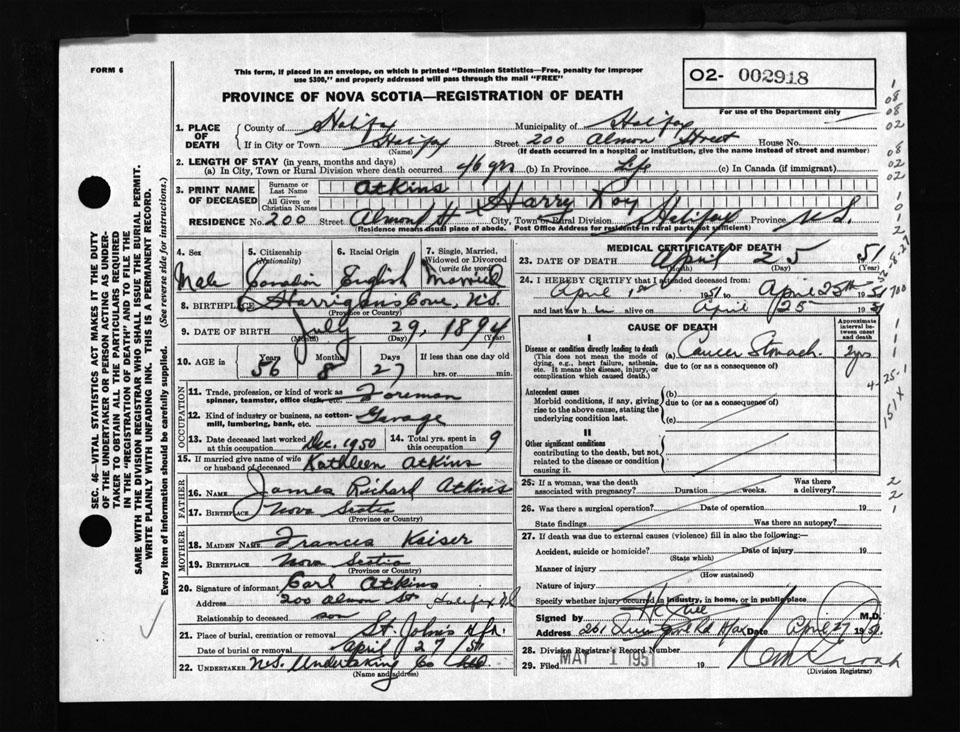 FORM 6
This form, if placed in an envelope, on which is printed "Dominion Statistics—Free, penalty for improper
use $300," and properly addressed will pass through the mail "FREE"
O2- 002918
For use of the Department only
PROVINCE OF NOVA SCOTIA—REGISTRATION OF DEATH
1. PLACE OF DEATH
County of Halifax Municipality of Halifax
If in City or Town Halifax (Name) Street 200 Almon Street House No.
(If death occurred in a hospital or institution, give the name instead of street and number)
2. LENGTH OF STAY (in years, months and days)
(a) In City, Town or Rural Division where death occurred 46 yrs (b) In Province Life (c) In Canada (if immigrant)
3. PRINT NAME OF DECEASED
Surname or Last Name Atkins
All Given or Christian Names Harry Roy
RESIDENCE No. 200 Street Almond St City, Town or Rural Division Halifax Province N.S.
(Residence means usual place of abode. Post Office Address for residents in rural parts not sufficient)
4. Sex Male
5. Citizenship (Nationality) Canadian
6. Racial Origin English
7. Single, Married, Widowed or Divorced (write the word) Married
8. BIRTHPLACE Harrigans Cove, N.S.
(Province or Country)
9. DATE OF BIRTH July 29, 1894
(Month) (Day) (Year)
10. AGE in Years 56 Months 8 Days 27 If less than one day old
hrs. or min.
OCCUPATION
11. Trade, profession, or kind of work as spinner, teamster, office clerk, etc. Foreman
12. Kind of industry or business, as cotton-mill, lumbering, bank, etc. Garage
13. Date deceased last worked at this occupation Dec. 1950 14. Total yrs. spent in this occupation 9
15. If married give name of wife or husband of deceased Kathleen Atkins
FATHER
16. NAME James Richard Atkins
17. BIRTHPLACE Nova Scotia
(Province or Country)
MOTHER
18. MAIDEN NAME Frances Kaiser
19. BIRTHPLACE Nova Scotia
(Province or Country)
20. Signature of informant Carl Atkins
Address 200 Almon St Halifax N.S
Relationship to deceased son
21. Place of burial, cremation or removal St. John's
Date of burial or removal April 27/51
22. UNDERTAKER N.S. Undertaking Co Ltd
(Name and address)
MEDICAL CERTIFICATE OF DEATH
23. DATE OF DEATH April 25 51
(Month) (Day) (Year)
24. I HEREBY CERTIFY that I attended deceased from:
April 1st 1951 to April 25th 1951
and last saw h im alive on April 25 1951
CAUSE OF DEATH
Approximate interval between onset and death
I
Disease or condition directly leading to death (a) Cancer Stomach 2 yrs
(This does not mean the mode of dying, e.g., heart failure, asthenia, etc. It means the disease, injury, or complication which caused death.)
due to (or as a consequence of)
Antecedent causes
Morbid conditions, if any, giving rise to the above cause, stating the underlying condition last.
(b)
due to (or as a consequence of)
(c)
II
Other significant conditions
contributing to the death, but not related to the disease or condition causing it.
25. If a woman, was the death associated with pregnancy? Duration weeks. Was there a delivery?
26. Was there a surgical operation? Date of operation 19
State findings Was there an autopsy?
27. If death was due to external causes (violence) fill in also the following:—
Accident, suicide or homicide? Date of injury 19
(State which)
Manner of injury
(How sustained)
Nature of injury
Specify whether injury occurred in industry, in home, or in public place
Signed by M.D.
Address 261 Date April 27 1951
28. Division Registrar's Record Number
29. Filed MAY 1 1951 19
(Division Registrar)
SEC. 46—VITAL STATISTICS ACT MAKES IT THE DUTY
OF THE UNDERTAKER OR PERSON ACTING AS UNDER-
TAKER TO OBTAIN ALL THE PARTICULARS REQUIRED
IN THE "REGISTRATION OF DEATH" AND TO FILE THE
SAME WITH THE DIVISION REGISTRAR WHO SHALL ISSUE THE BURIAL PERMIT.
WRITE PLAINLY WITH UNFADING INK. THIS IS A PERMANENT RECORD.
Every item of information should be carefully supplied. (See reverse side for instructions.)